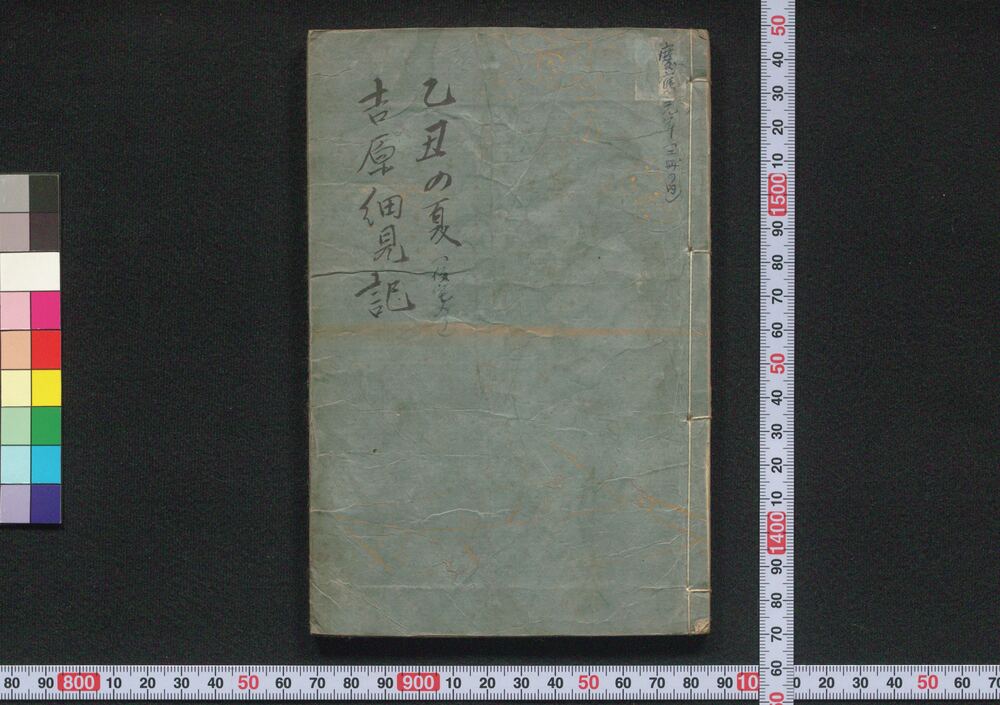 慶応元年
乙丑の夏
吉原細見記
50
40
30
20
10
1500
90
80
70
60
50
40
30
20
10
1400
90
80
70
60
50
80 90 800 10 20 30 40 50 60 70 80 90 900 10 20 30 40 50 60 70 80 90 10 0 20 30 40 50 60 70